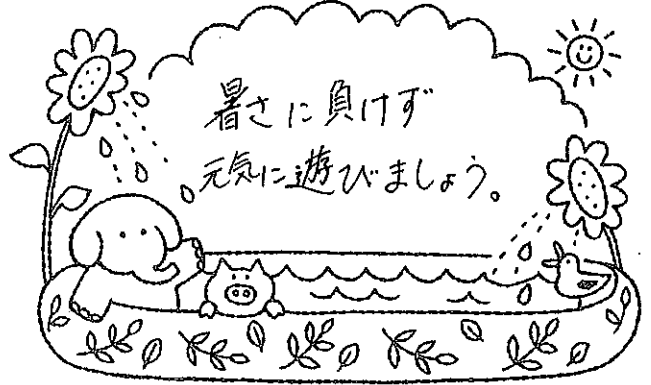 暑さに負けず
元気に遊びましょう。